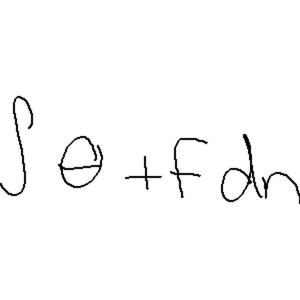 ∫ θ + F dn